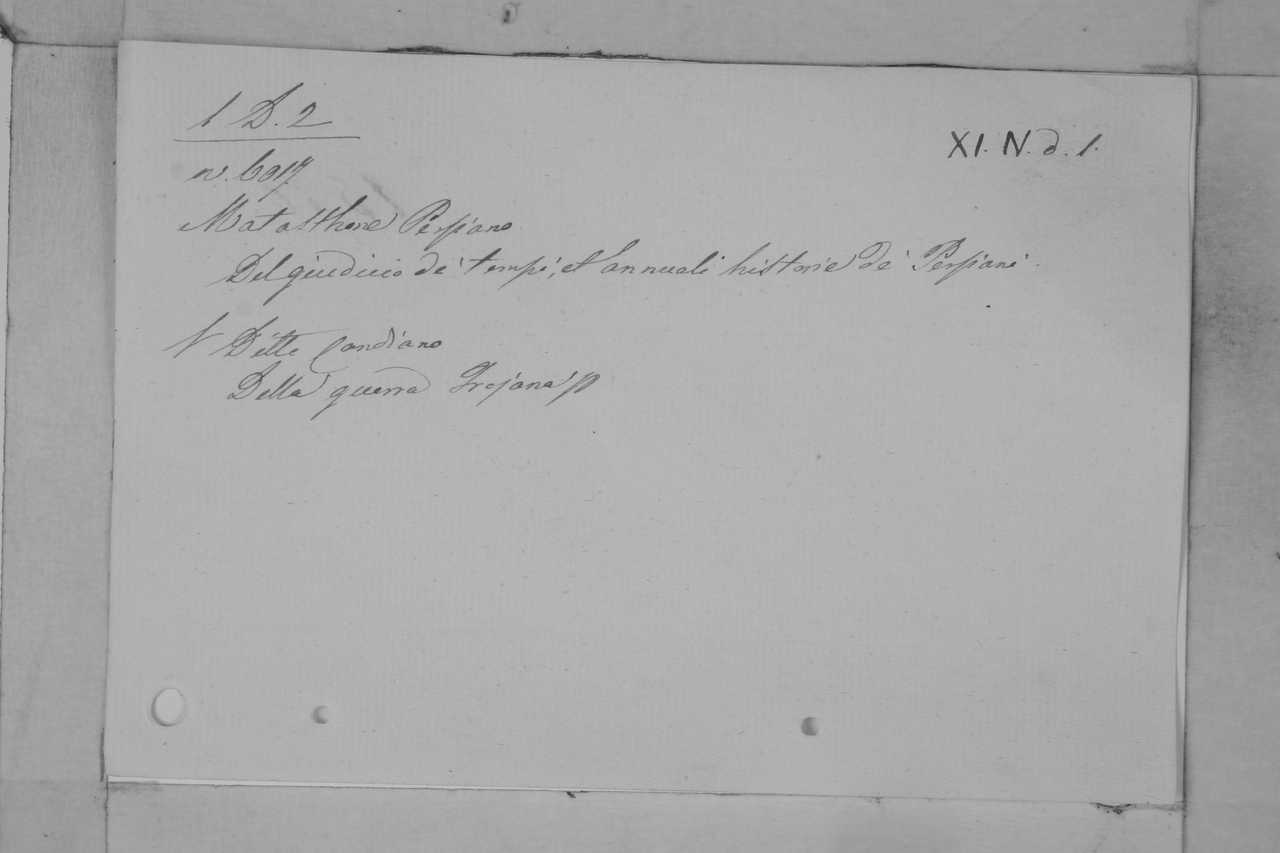 1 D. 2
XI. N. d. 1.
n. 6917
Matasthene Persiano
Del giudicio de' tempi, et annuali historie de' Persiani.
V Ditte Candiano
Della guerra Trojana